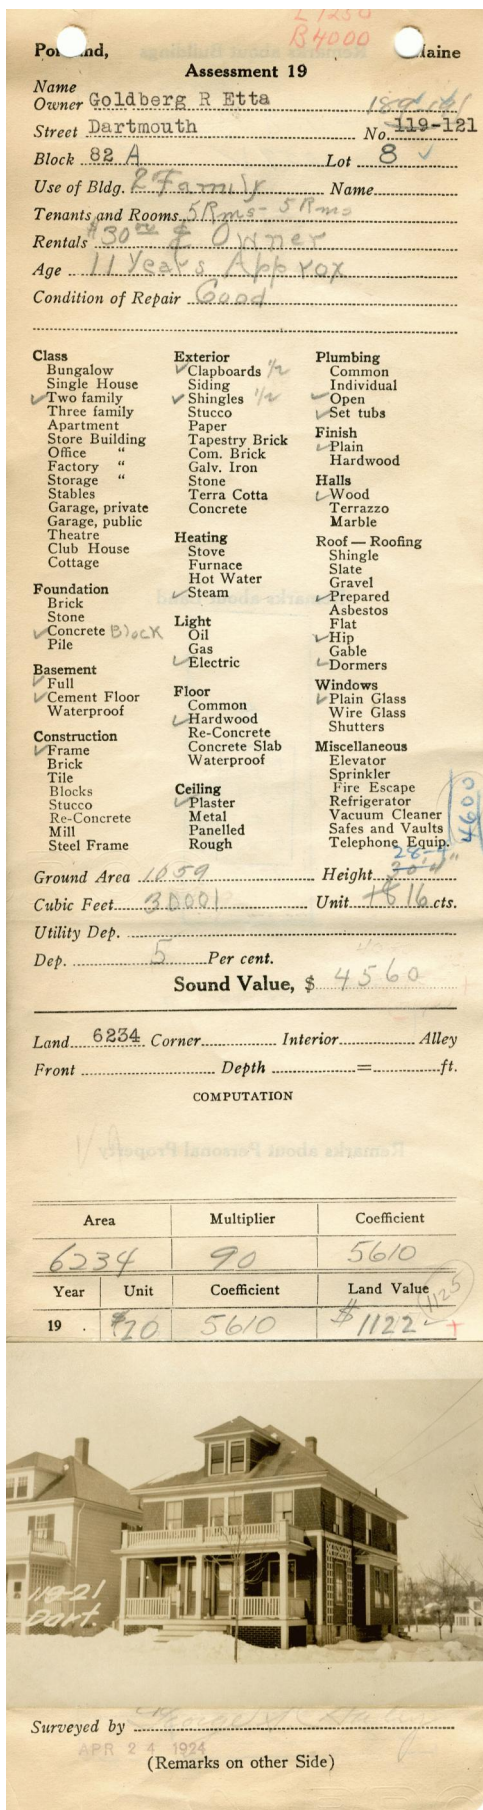 L 1250
B 4000
Portland, Maine
Assessment 19
Name
Owner Goldberg R Etta
Street Dartmouth No. 119-121
Block 82 A Lot 8 ✓
Use of Bldg. 2 Family Name
Tenants and Rooms 5 Rms - 5 Rms
Rentals $30 00 & Owner
Age 11 Years Approx
Condition of Repair Good
Class
Bungalow
Single House
✓ Two family
Three family
Apartment
Store Building
Office "
Factory "
Storage "
Stables
Garage, private
Garage, public
Theatre
Club House
Cottage
Foundation
Brick
Stone
✓ Concrete Block
Pile
Basement
✓ Full
✓ Cement Floor
Waterproof
Construction
✓ Frame
Brick
Tile
Blocks
Stucco
Re-Concrete
Mill
Steel Frame
Exterior
✓ Clapboards 1/2
Siding
✓ Shingles 1/2
Stucco
Paper
Tapestry Brick
Com. Brick
Galv. Iron
Stone
Terra Cotta
Concrete
Heating
Stove
Furnace
Hot Water
✓ Steam
Light
Oil
Gas
✓ Electric
Floor
Common
✓ Hardwood
Re-Concrete
Concrete Slab
Waterproof
Ceiling
✓ Plaster
Metal
Panelled
Rough
Plumbing
Common
Individual
✓ Open
✓ Set tubs
Finish
✓ Plain
Hardwood
Halls
✓ Wood
Terrazzo
Marble
Roof — Roofing
Shingle
Slate
Gravel
✓ Prepared
Asbestos
Flat
✓ Hip
Gable
✓ Dormers
Windows
✓ Plain Glass
Wire Glass
Shutters
Miscellaneous
Elevator
Sprinkler
Fire Escape
Refrigerator
Vacuum Cleaner
Safes and Vaults
Telephone Equip.
4600
28-4"
Ground Area 1059 Height
Cubic Feet 30001 Unit 16 cts.
Utility Dep.
Dep. 5 Per cent.
Sound Value, $ 4560
Land 6234 Corner Interior Alley
Front Depth = ft.
COMPUTATION
Remarks about Personal Property
Area Multiplier Coefficient
6234 90 5610
Year Unit Coefficient Land Value 1125
19 . $20 5610 $1122
119-21
Dart.
Surveyed by
APR 24 1924
(Remarks on other Side)